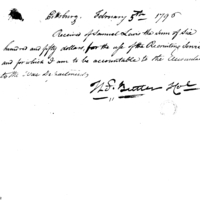 Pittsburg. February 5th 1796
Received of Samuel Law the sum of Six
hundred and fifty dollars, for the use of the Recruiting Service
and for which I am to be accountable to the Accountant
to the War Department
Butler